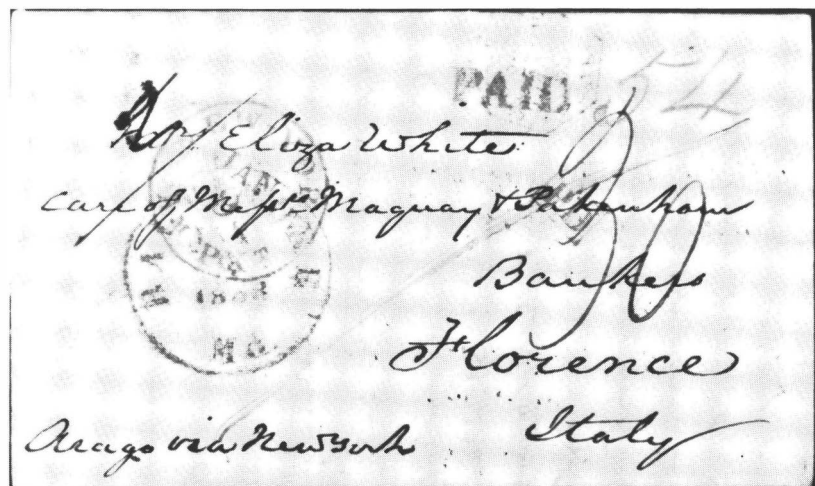 PAID 54
Eliza White
Care of Messrs Maquay & Pakenham
Bankers
Florence
Italy
Arago via New York